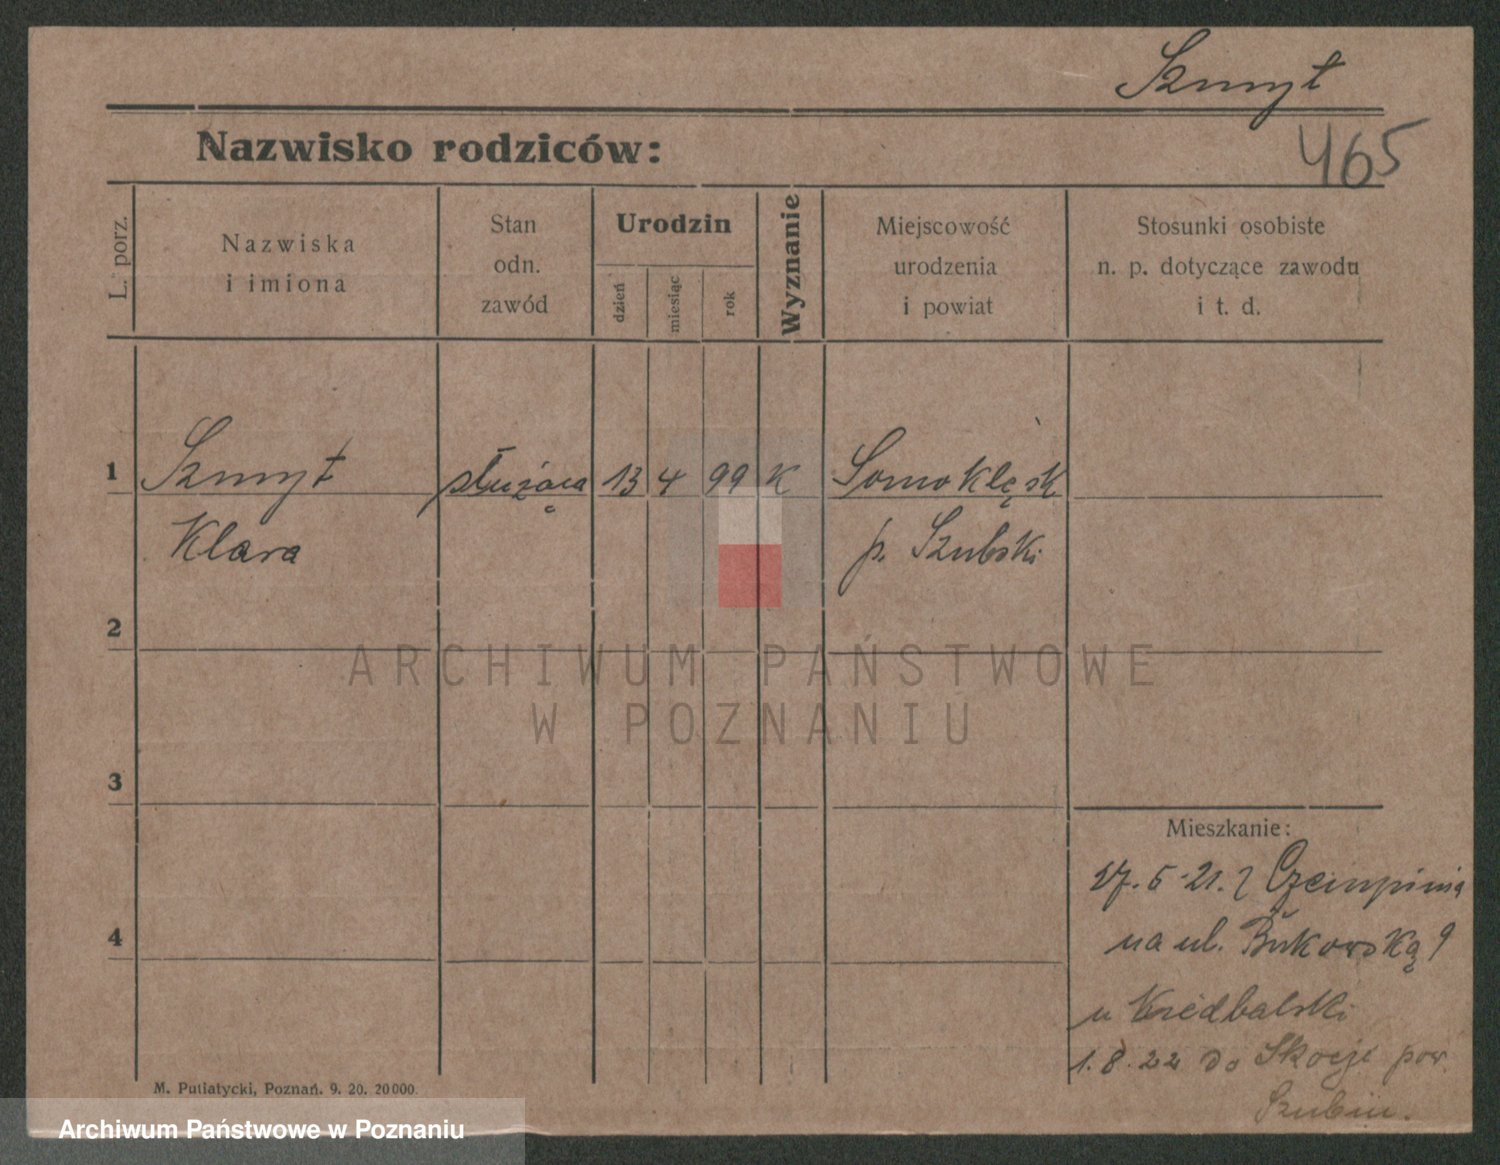 Szmyt
Nazwisko rodziców:
465
L. porz.
Nazwiska
i imiona
Stan
odn.
zawód
Urodzin
dzień
miesiąc
rok
Wyznanie
Miejscowość
urodzenia
i powiat
Stosunki osobiste
n. p. dotyczące zawodu
i t. d.
1 Szmyt służąca 13 4 99 K Somoklęsk
Klara p. Szubski
2
3
4
Mieszkanie:
17. 5 21. z Czempinia
na ul. Bukowską 9
u Niedbalski
1. 8. 22 do pow.
Szubin.
M. Putiatycki, Poznań. 9. 20. 20000.
ARCHIWUM PAŃSTWOWE
W POZNANIU
Archiwum Państwowe w Poznaniu